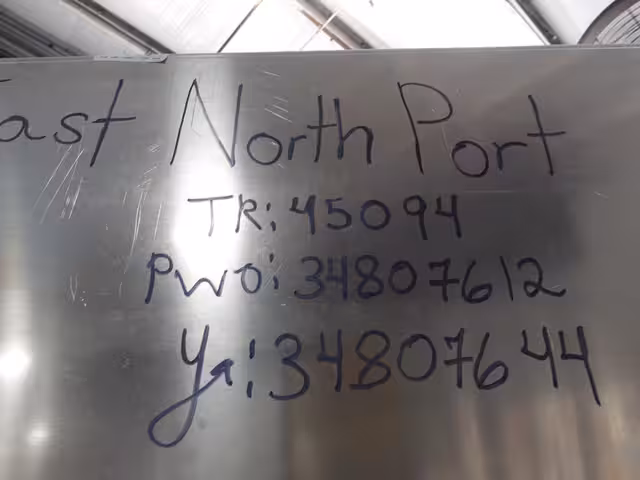 East North Port
TR: 45094
PWO: 34807612
Yr: 34807644